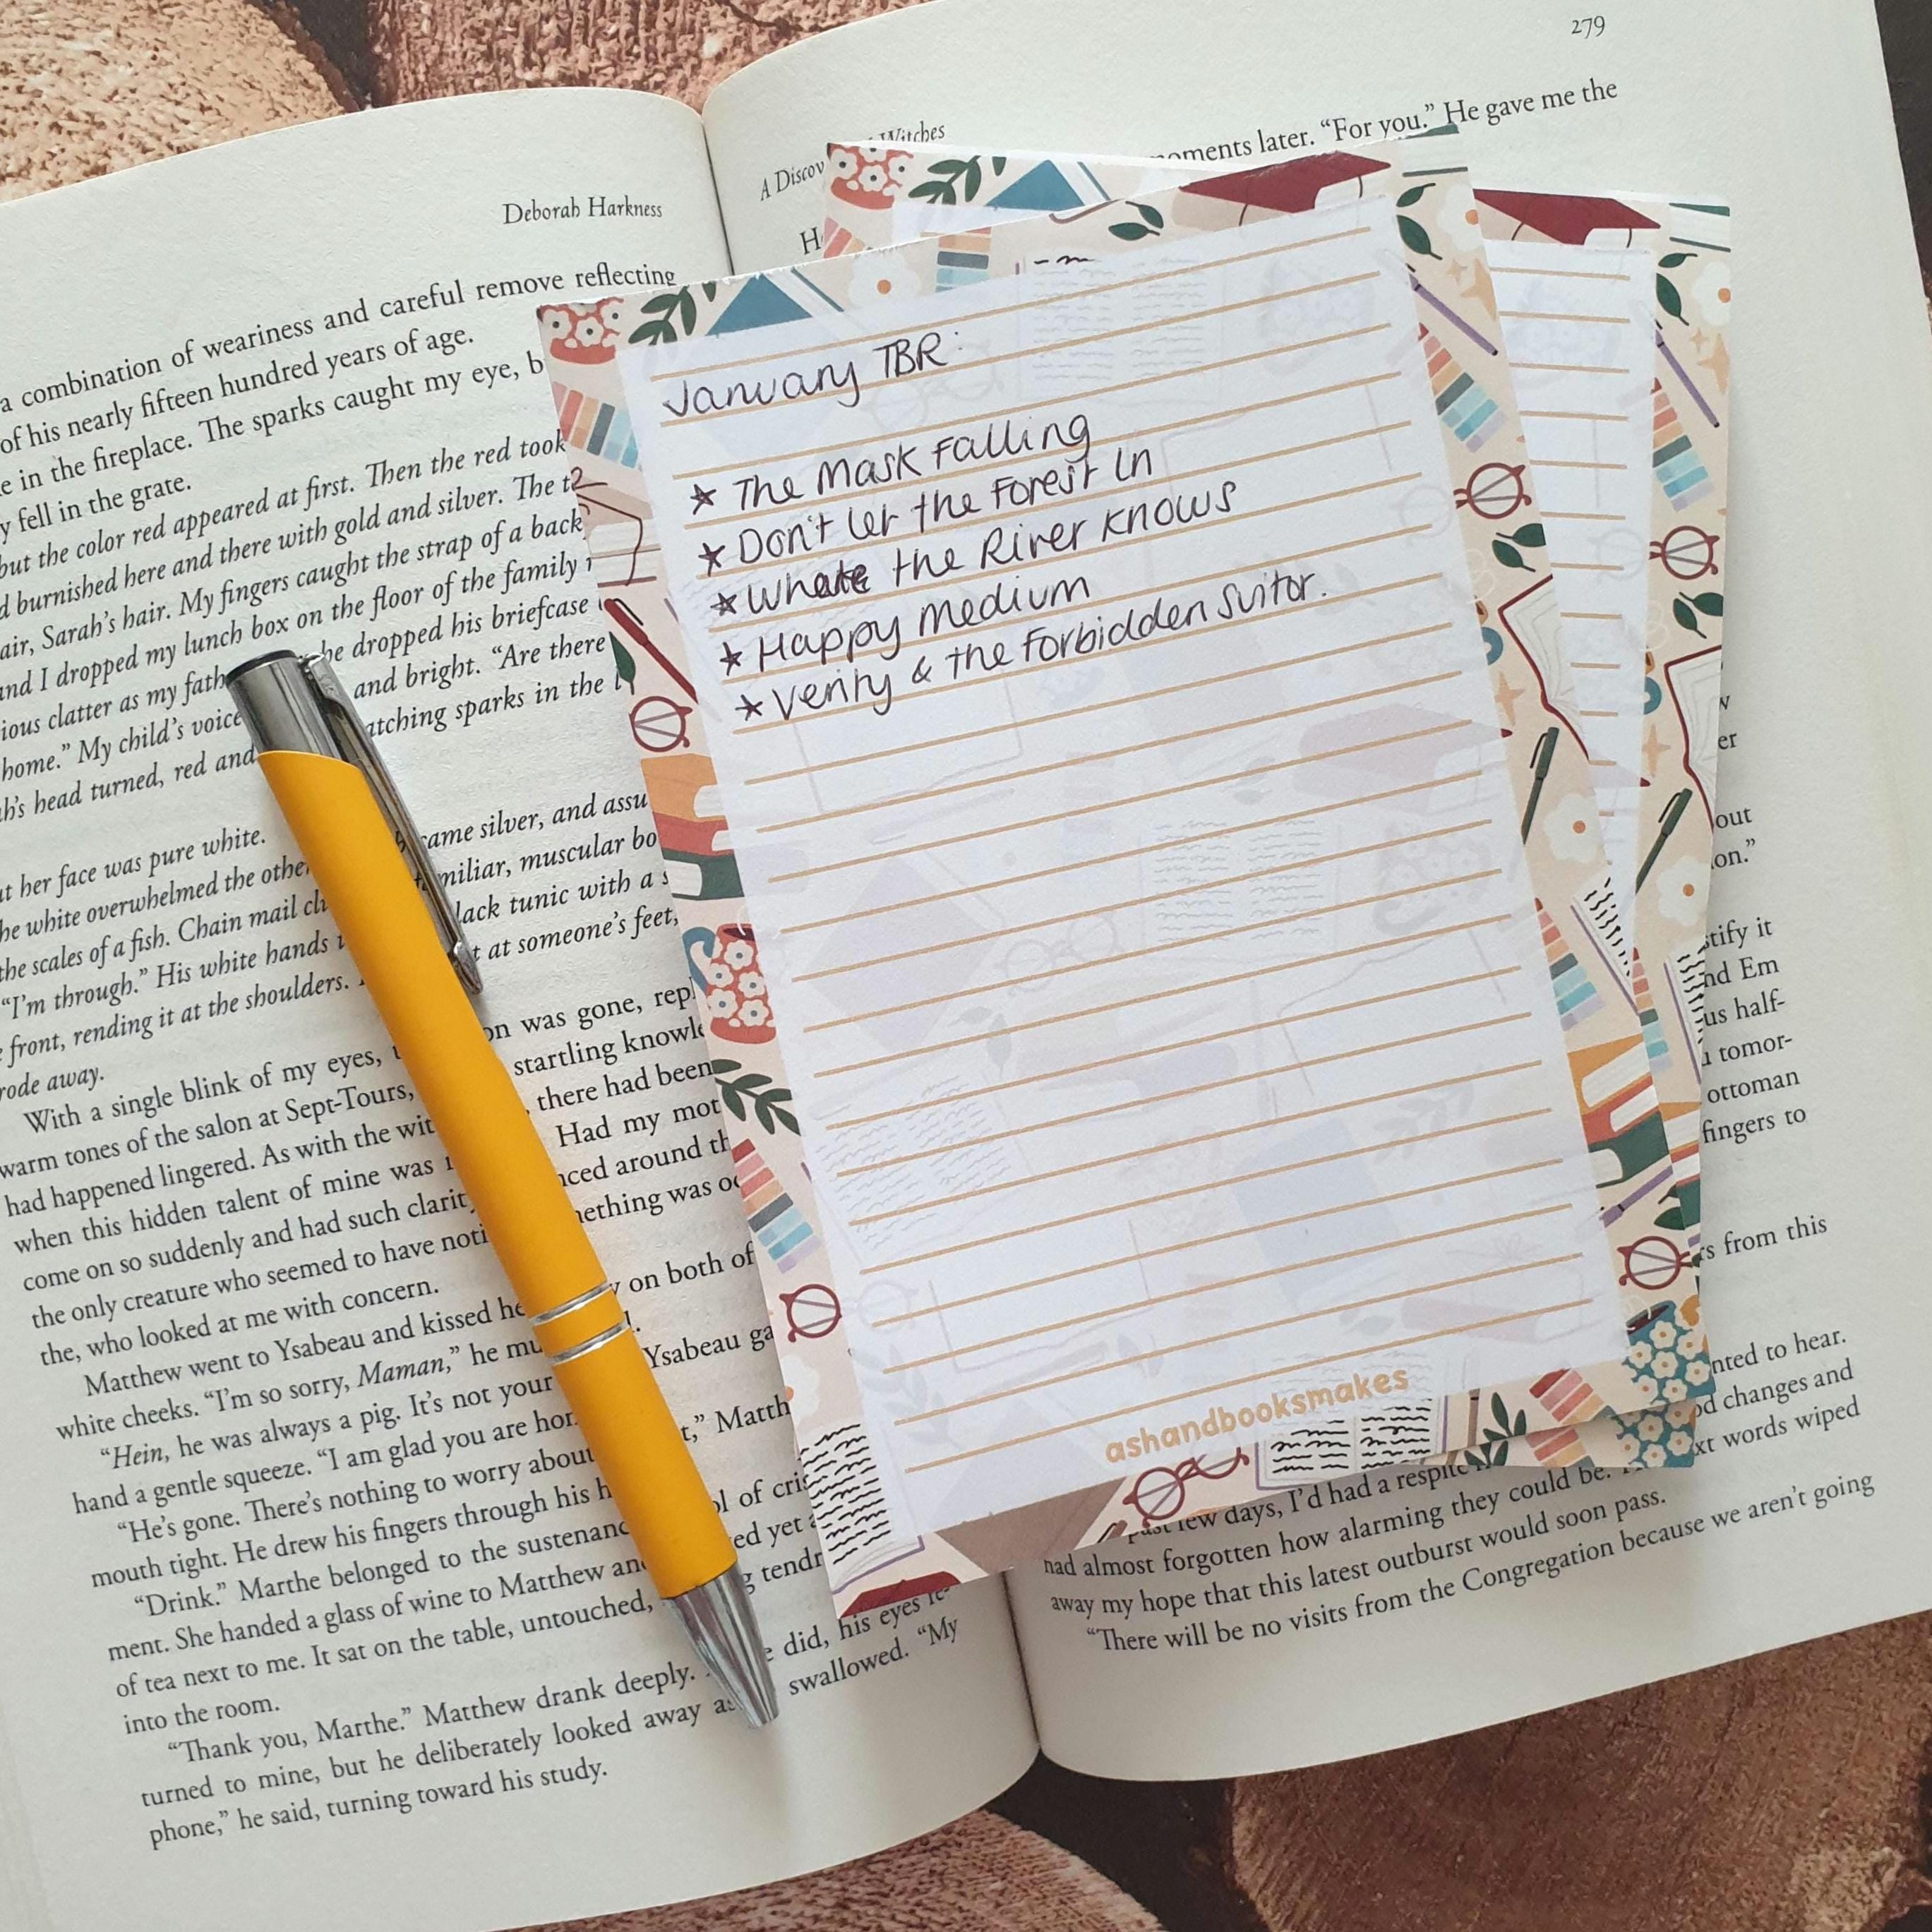 Deborah Harkness
a combination of weariness and careful remove reflecting
of his nearly fifteen hundred years of age.
e in the fireplace. The sparks caught my eye, b
y fell in the grate.
but the color red appeared at first. Then the red took
d burnished here and there with gold and silver. The t
air, Sarah's hair. My fingers caught the strap of a back
and I dropped my lunch box on the floor of the family r
ious clatter as my fath he dropped his briefcase
home." My child's voice and bright. "Are there
h's head turned, red and atching sparks in the l
t her face was pure white.
came silver, and assu
he white overwhelmed the othe familiar, muscular bo
the scales of a fish. Chain mail cl lack tunic with a s
"I'm through." His white hands t t at someone's feet,
front, rending it at the shoulders.
rode away.
With a single blink of my eyes, on was gone, rep
warm tones of the salon at Sept-Tours, startling knowle
had happened lingered. As with the wit , there had been
when this hidden talent of mine was Had my mot
come on so suddenly and had such clarit nced around th
the only creature who seemed to have noti ething was o
the, who looked at me with concern.
Matthew went to Ysabeau and kissed he y on both of
white cheeks. "I'm so sorry, Maman," he mu
"Hein, he was always a pig. It's not your Ysabeau ga
hand a gentle squeeze. "I am glad you are hom t," Matth
"He's gone. There's nothing to worry about
mouth tight. He drew his fingers through his h
"Drink." Marthe belonged to the sustenanc ol of cris
ment. She handed a glass of wine to Matthew and ed yet a
of tea next to me. It sat on the table, untouched, g tendr
into the room.
"Thank you, Marthe." Matthew drank deeply. did, his eyes re-
turned to mine, but he deliberately looked away as swallowed. "My
phone," he said, turning toward his study.
279
A Discov Witches
H moments later. "For you." He gave me the
January TBR:
★ The Mask Falling
★ Don't let the Forest In
★ Whate the River Knows
★ Happy Medium
★ Verity & the Forbidden Suitor.
ashandbooksmakes
er
out
on."
stify it
nd Em
us half-
tomor-
ottoman
fingers to
rs from this
nted to hear.
od changes and
xt words wiped
past few days, I'd had a respite
had almost forgotten how alarming they could be.
away my hope that this latest outburst would soon pass.
"There will be no visits from the Congregation because we aren't going